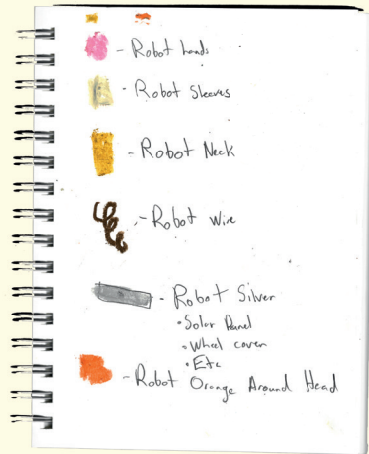 - Robot hands
- Robot Sleeves
- Robot Neck
- Robot Wire
- Robot Silver
• Solar Panel
• Wheel cover
• Etc
- Robot Orange Around Head